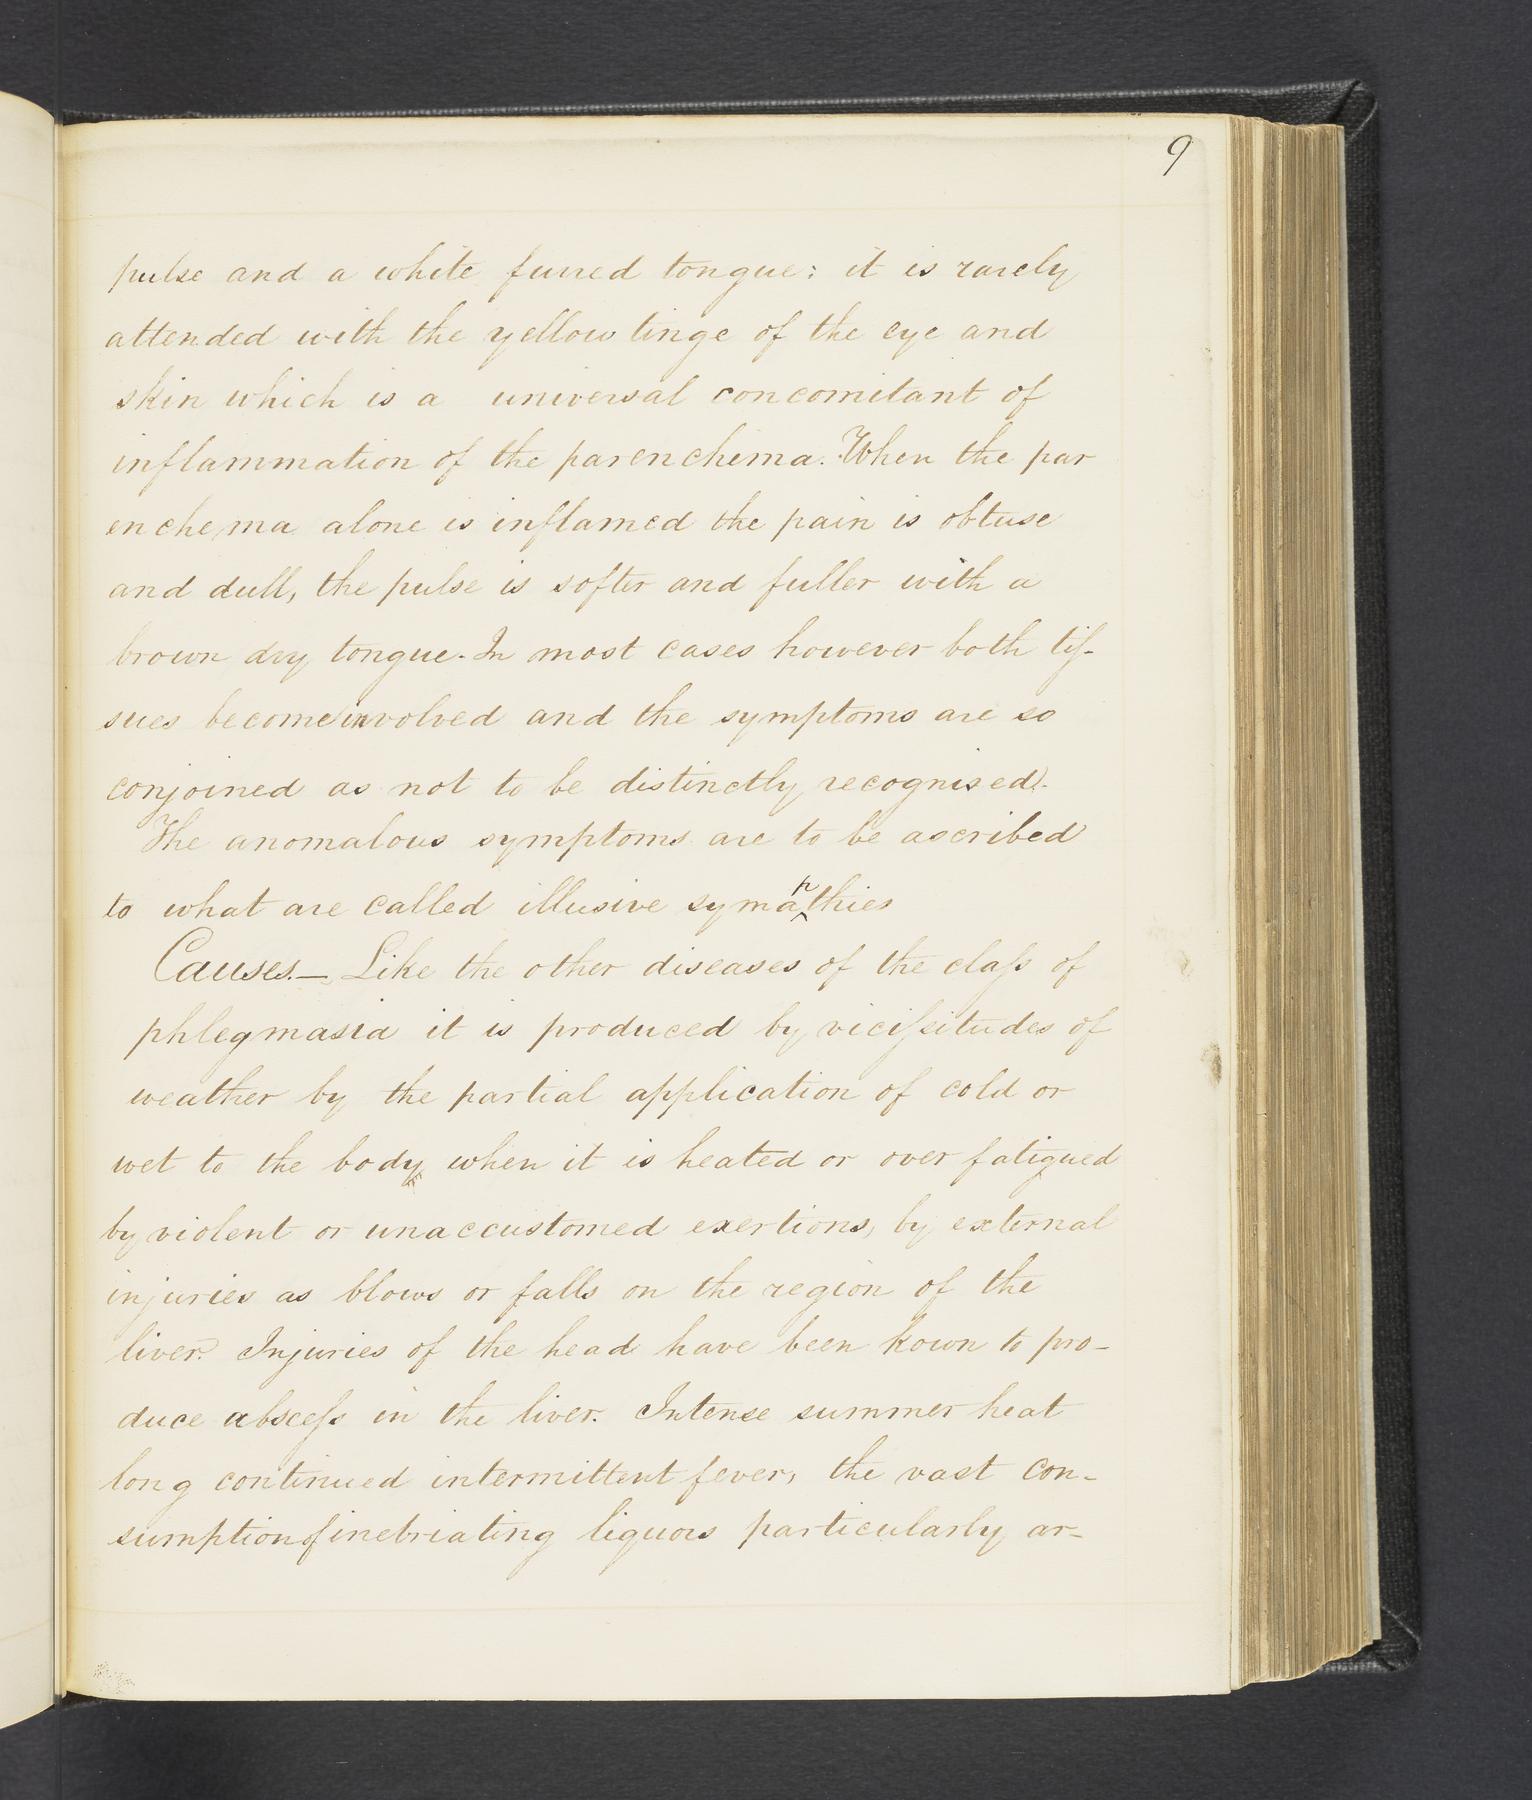 9
pulse and a white furred tongue: it is rarely
attended with the yellow tinge of the eye and
skin which is a universal concomitant of
inflammation of the parenchima. When the par
enchema alone is inflamed the pain is obtuse
and dull, the pulse is softer and fuller with a
brown dry tongue. In most cases however both tiſ-
sues become involved and the symptoms are so
conjoined as not to be distinctly recognised.
The anomalous symptoms are to be ascribed
to what are called illusive symapthies
Causes.— Like the other diseases of the claſs of
phlegmasia it is produced by viciſsitudes of
weather by the partial application of cold or
wet to the body when it is heated or over fatigued
by violent or unaccustomed exertions, by external
injuries as blows or falls on the region of the
liver. Injuries of the head have been kown to pro-
duce absceſs in the liver. Intense summer heat
long continued intermittent fever, the vast con-
sumption of inebriating liquors particularly ar-